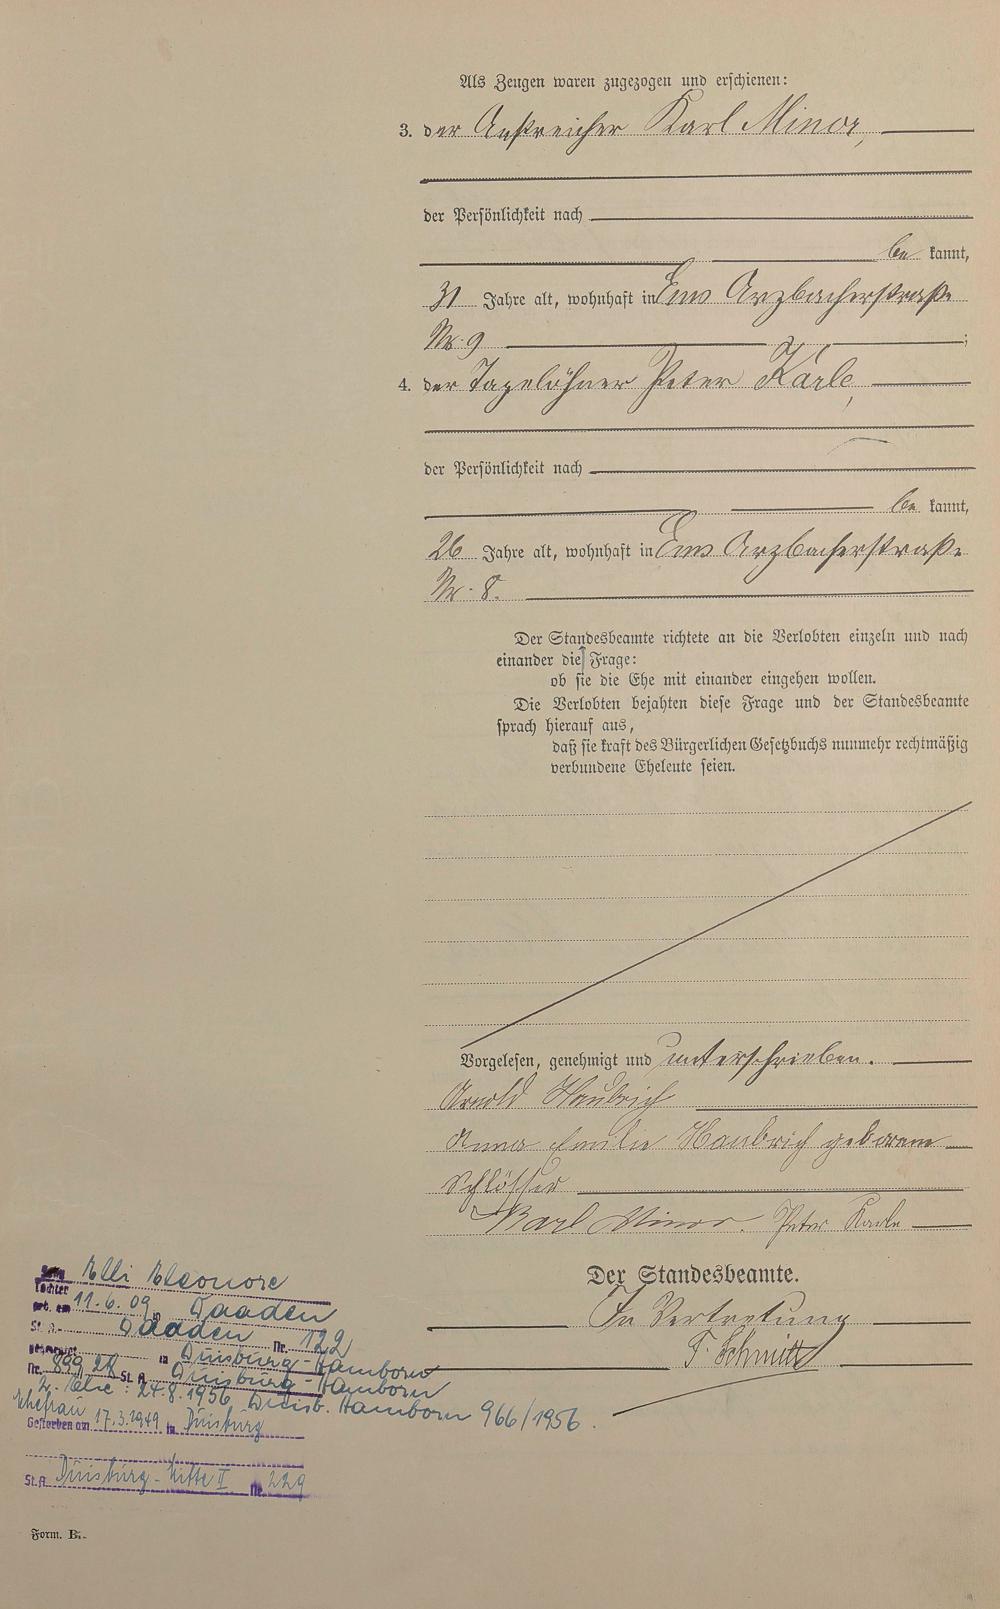 Als Zeugen waren zugezogen und erschienen:
3. der Anstreicher Karl Minor,
der Persönlichkeit nach
be kannt,
31 Jahre alt, wohnhaft in Ems Arzbacherstraße
Nr. 9 ;
4. der Tagelöhner Peter Karle,
der Persönlichkeit nach
be kannt,
26 Jahre alt, wohnhaft in Ems Arzbacherstraße
Nr. 8.
Der Standesbeamte richtete an die Verlobten einzeln und nach
einander die Frage:
ob sie die Ehe mit einander eingehen wollen.
Die Verlobten bejahten diese Frage und der Standesbeamte
sprach hierauf aus,
daß sie kraft des Bürgerlichen Gesetzbuchs nunmehr rechtmäßig
verbundene Eheleute seien.
Vorgelesen, genehmigt und unterschrieben.
Arnold Haubrich
Anna Emilie Haubrich geborene
Schlösser
Karl Minor. Peter Karle
Der Standesbeamte.
In Vertretung
F. Schmitt
Tochter Elli Eleonore
geb. am 11.6.09 in Daaden
St. A. Daaden Nr. 122
in Duisburg-Hamborn
Nr. 899/28 St. A. Duisburg-Hamborn
2. Ehe: 24.8.1956 Duisb. Hamborn 966/1956.
Ehefrau
Gestorben am 17.3.1949 in Duisburg
St. A. Duisburg-Mitte II Nr. 229
Form. B.